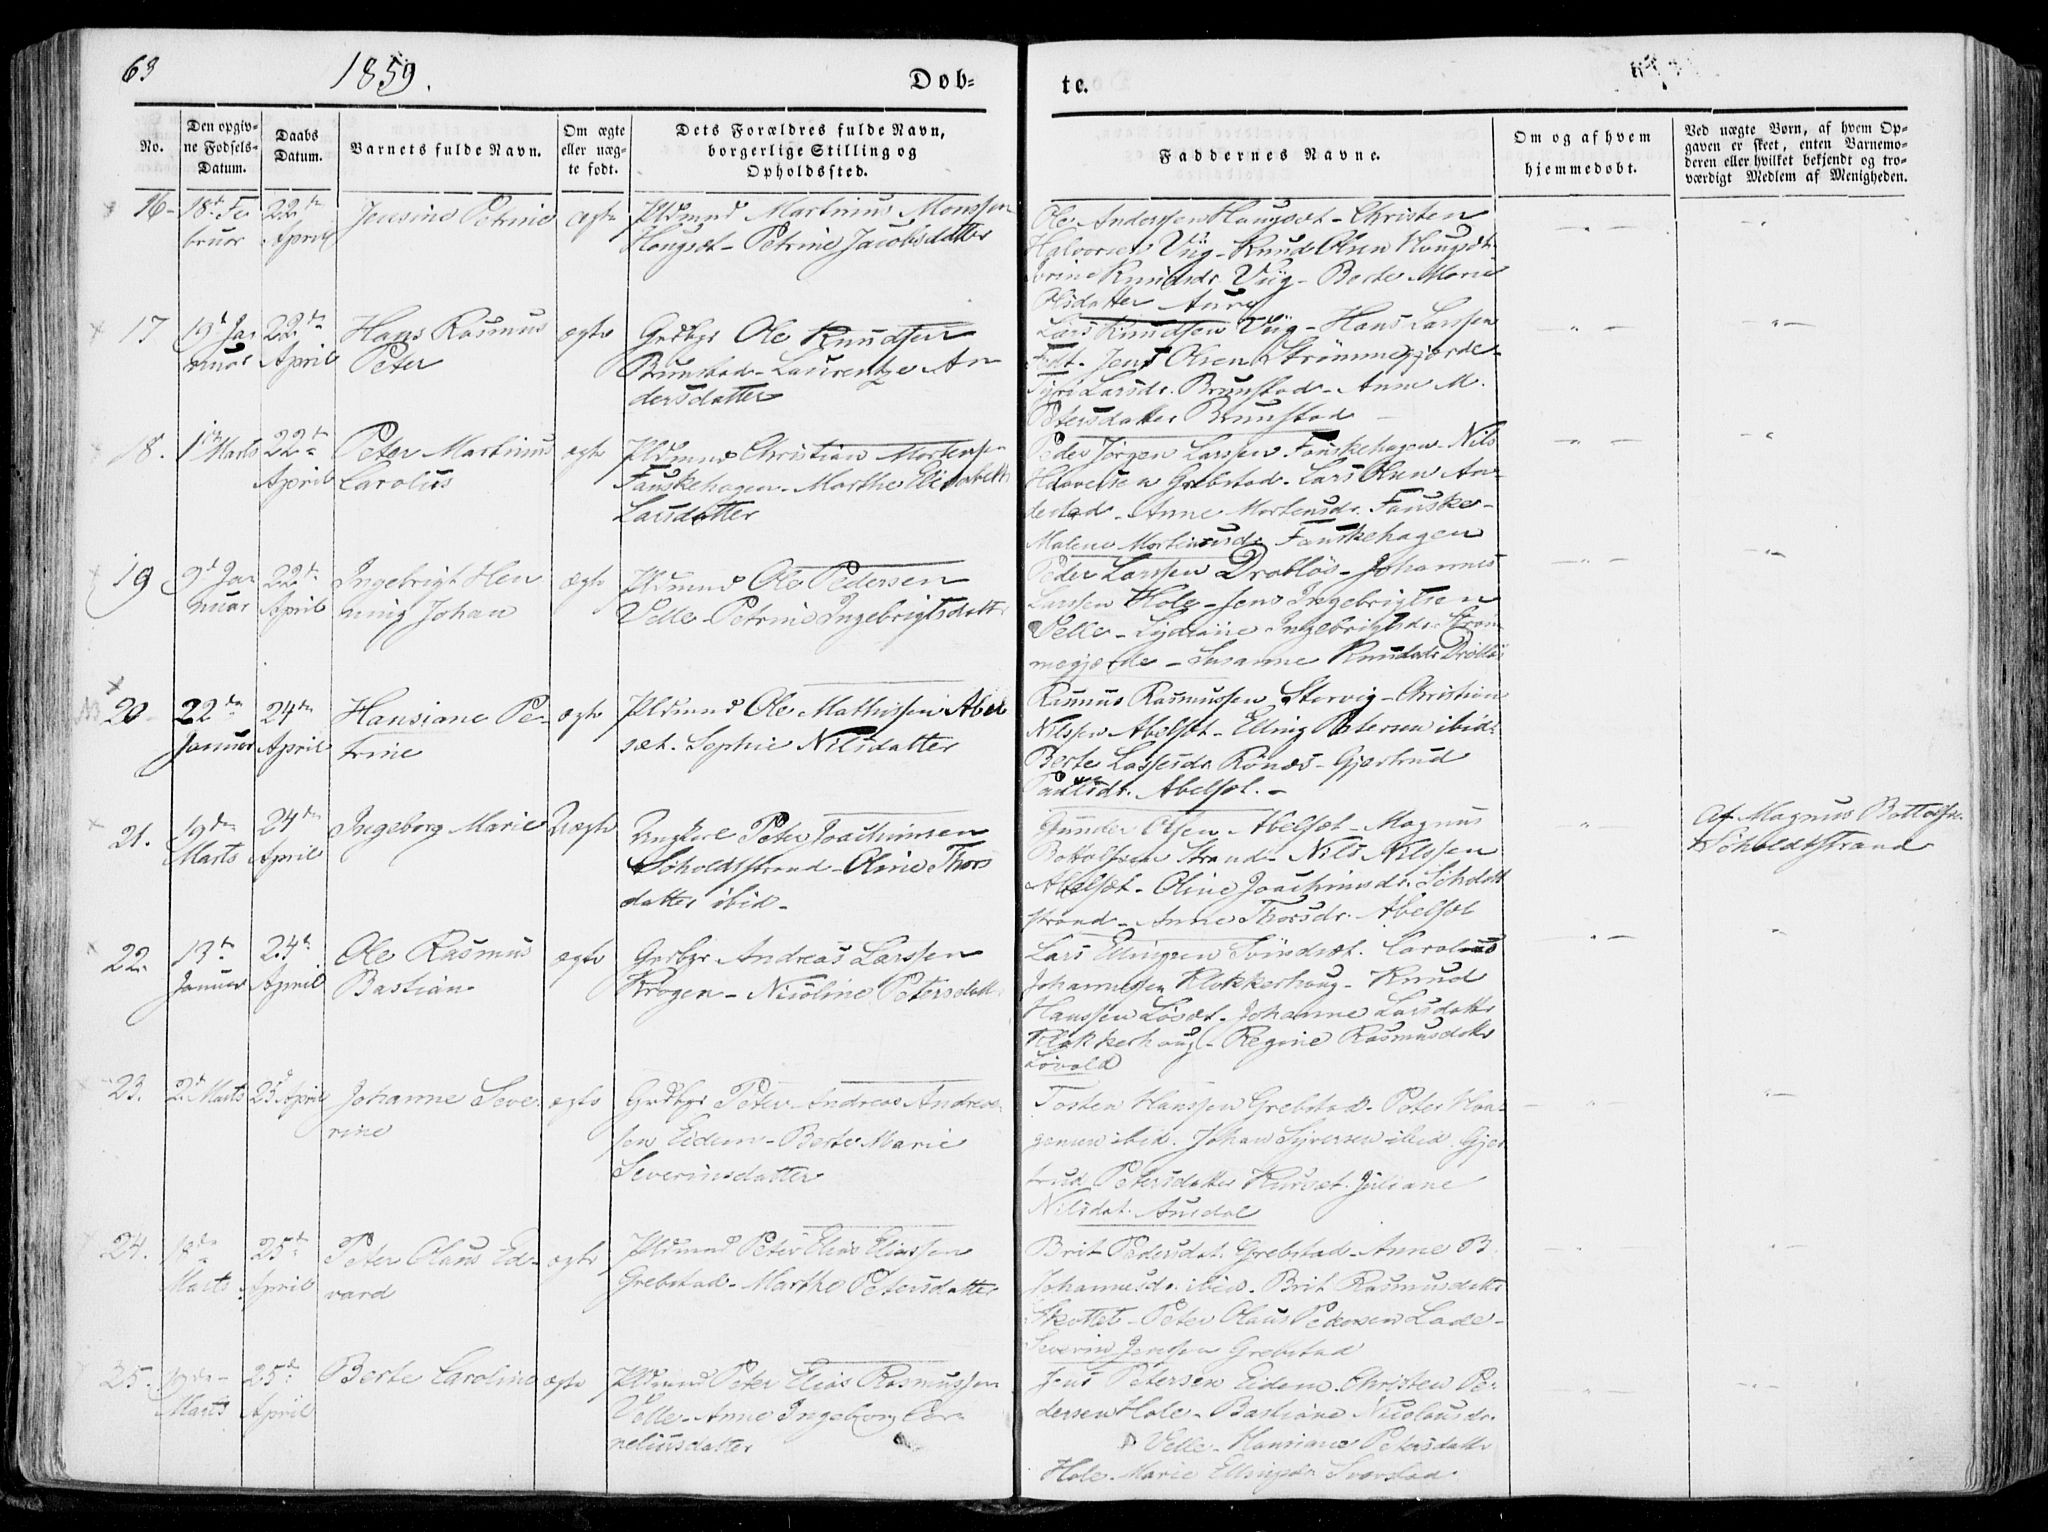 63
1859.
Døb-
te.
No.
Den opgiv-
ne Fødsels-
Datum.
Daabs
Datum.
Barnets fulde Navn.
Om ægte
eller uæg-
te født.
Dets Forældres fulde Navn,
borgerlige Stilling og
Opholdssted.
Faddernes Navne.
Om og af hvem
hjemmedøbt.
Ved uægte Børn, af hvem Op-
gaven er skeet, enten Barnemo-
deren eller hvilket bekjendt og tro-
værdigt Medlem af Menigheden.
16
18de Fe
bruar
22de
April
Jensine Petrine
ægte
Pldmand Martinus Monssen
Haugset - Petrine Jacobsdatter
Ole Anderssen Haugset - Christen
Halvorsen Viig - Knud Olsen Haugset
Knudsdr. Viig - Berte Marie
Olsdatter Aure
17
19de Ja
nuar
22de
April
Hans Rasmus
Peter
ægte
Grdbgr Ole Knudsen
Brunstad - Laurentze An
dersdatter
Lars Knudsen Viig - Hans Larssen
Jens Olsen Strømmegjerde -
Larsdr. Brunstad - Anne M.
Petersdatter Brunstad
18.
1ste Marts
22de
April
Peter Martinus
Carolus
ægte
Pldmand Christian Mortensen
Fauskehagen - Marthe Elisabeth
Larsdatter
Peder Jørgen Larssen Fauskehagen - Nils
Grebstad - Lars Olsen An
destad - Anne Mortensdr. Fauske -
Malene Martinusdr. Fauskehagen
19
9de Ja
nuar
22de
April
Ingebrigt Hen
ning Johan
ægte
Pldmand Ole Pedersen
Velle - Petrine Ingebrigtsdatter
Peder Larssen Drabløs - Johannes
Larssen Hole - Jens Ingebrigtsen
Velle - Ingebrigtsdr. Strøm
megjerde - Susanne Knudsdr. Drabløs
20
22de
Januar
24de
April
Hansiane Pe-
trine
ægte
Pldmand Ole Mathissen Abel
set. Sophie Nilsdatter
Rasmus Rasmussen - Christian
Nilssen Abelset - Elling Petersen ibid.
Berte Lassesdr. Rønæs - Gjertrud
Paulsdr. Abelset. -
21.
19de
Marts
24de
April
Ingeborg Marie
Uægte
Ungkarl Peter Joachimsen
Scholdtstrand - Oline Thors
datter ibid -
Gunder Olsen Abelset - Magnus
Bottolfsen Strand - Nils Nilssen
Abelset - Oline Joachimsdr. Scholdt
strand - Anne Thorsdr. Abelset
Af Magnus Bottolfsen
Scholdtstrand
22.
13de
Januar
24de
April
Ole Rasmus
Bastian
ægte
Grdbgr Andreas Larssen
Krogen - Nicoline Petersdatter
Lars Ellingsen Svindset. Carolus
Johannessen Klokkerhaug - Knud
Hanssen Løset - Johanne Larsdatter
Klokkerhaug - Regine Rasmusdatter
Løvold
23.
2de Marts
25de April
Johanne Seve-
rine
ægte
Grdbgr Peter Andreas Andreas-
sen Eidem - Berte Marie
Severinsdatter
Tosten Hanssen Grebstad - Peter Haa-
gensen ibid. Johan Syversen ibid. Gjer
trud Petersdatter Kurset. Juliane
Nilsdat. Amdal
24.
18de
Marts
25de
April
Peter Olaus Ed-
vard
ægte
Pldmand Peter Elias Eliassen
Grebstad - Marthe Petersdatter
Brit Pedersdat. Grebstad - Anne B.
Johannesdr. ibid. Brit Rasmusdatter
Skottet - Peter Olaus Pedersen Lade -
Severin Jenssen Grebstad
25.
19de
Marts
25de
April
Berte Caroline
ægte
Pldmand Peter Elias Rasmussen
Velle - Anne Ingeborg Cor-
neliusdatter
Jens Petersen Eidem. Christen Pe-
dersen Hole - Bastiane Nicolausdr.
Velle - Hansiane Petersdatter
Hole. Marie Ellingsdr. Svorstad